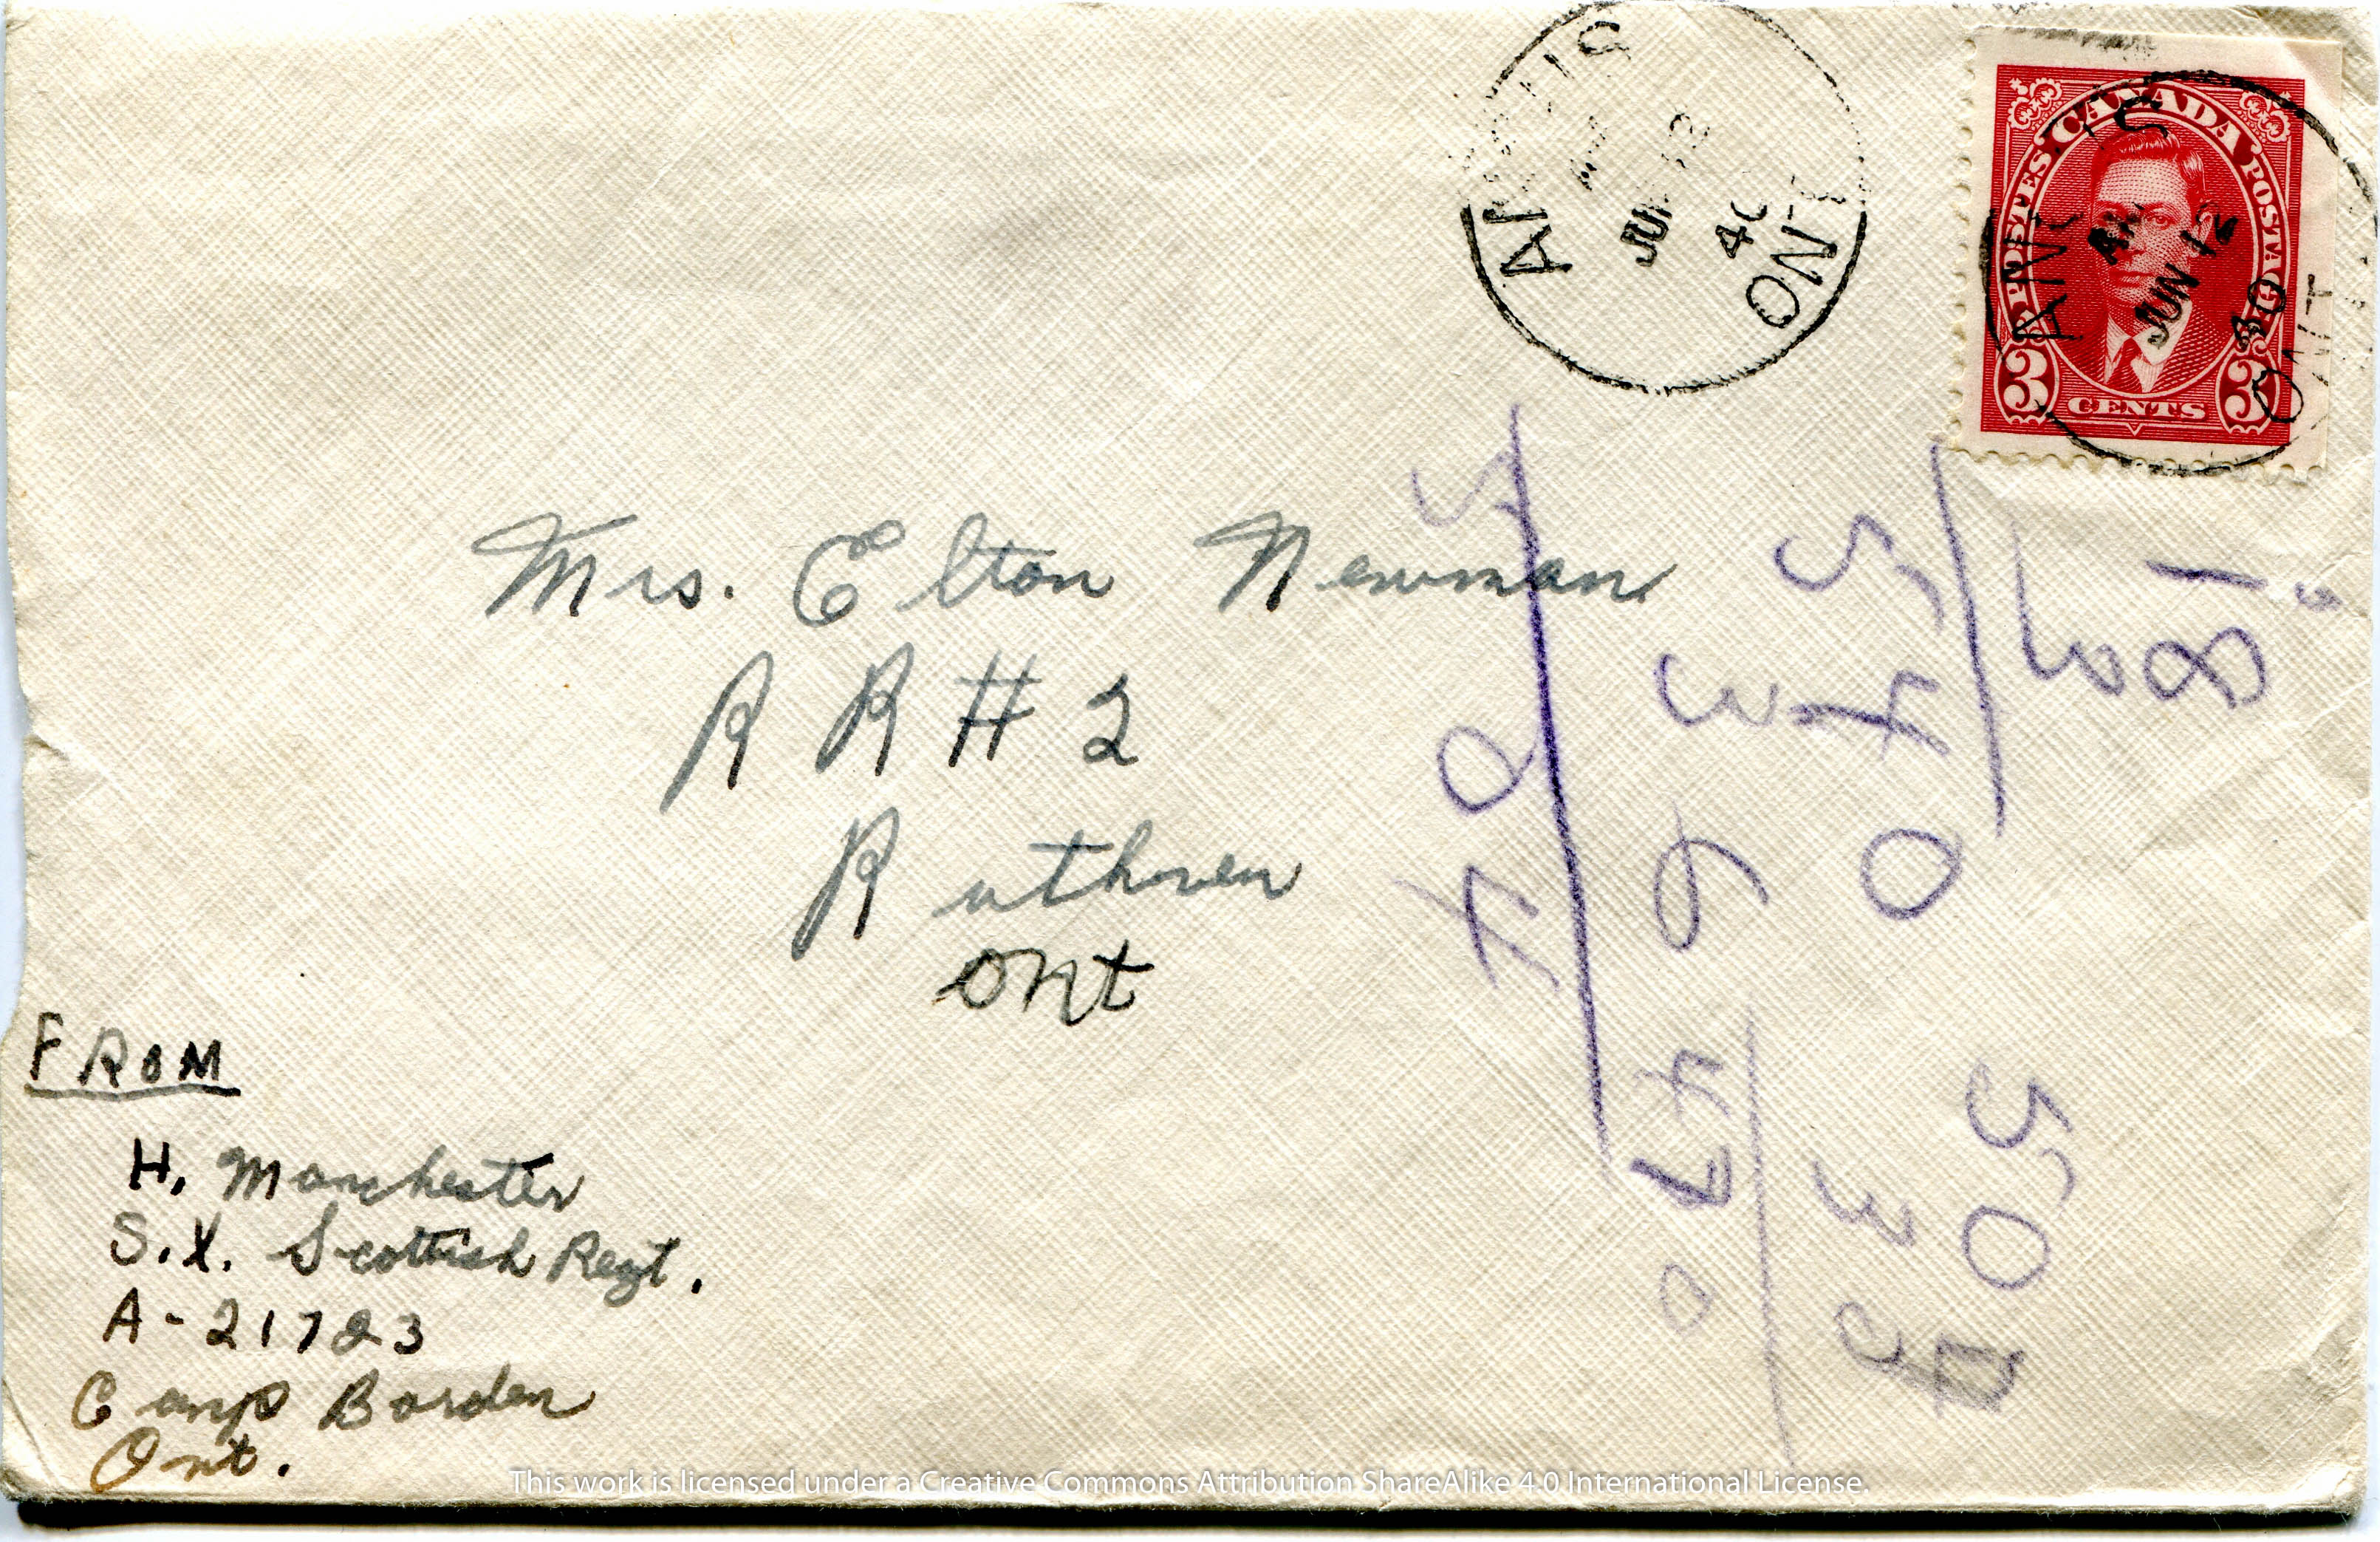 ANGUS
AM
JUN 12
40
ONT
CANADA
POSTES POSTAGE
3 CENTS 3
ANGUS
AM
JUN 12
40
ONT
Mrs. Elton Newman
RR # 2
Ruthven
Ont
FROM
H. Manchester
S.X. Scottish Regt.
A-21723
Camp Borden
Ont.
This work is licensed under a Creative Commons Attribution ShareAlike 4.0 International License.